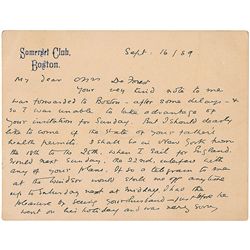 Somerset Club,
Boston.
Sept. 16/89
My dear Miss De Forest
Your very kind note to me
was forwarded to Boston - after some delays - &
so I was unable to take advantage of
your invitation for Sunday. But I should dearly
like to come if the state of your father's
health permits. I shall be in New York from
the 18th to the 25th, when I sail for England.
Would next Sunday, the 22nd, interfere with
any of your plans. If so a telegram to me
at the Windsor would state me off any time
up to Saturday next at midday. I had the
pleasure of seeing your husband just before he
went on his holiday and was very sorry